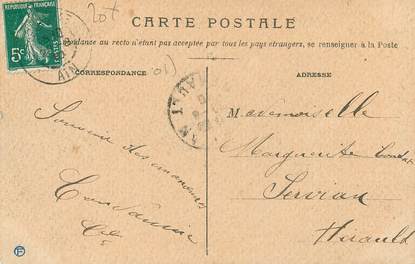 20+
RÉPUBLIQUE FRANÇAISE
5c
POSTES
AIN
CARTE POSTALE
La Correspondance au recto n'étant pas acceptée par tous les pays étrangers, se renseigner à la Poste
CORRESPONDANCE
ADRESSE
Souvenir des manoeuvres
Mademoiselle
Marguerite
Servian
Hérault